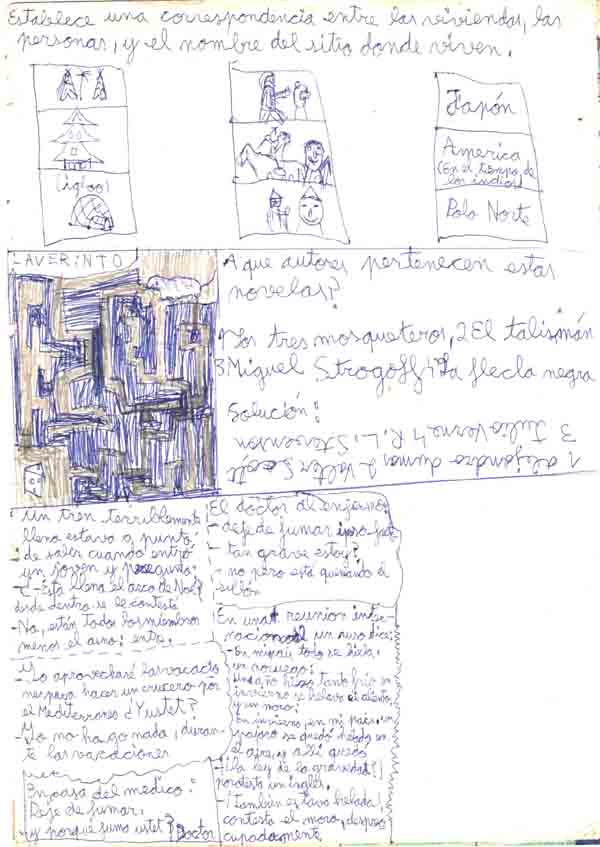 Establece una correspondencia entre las viviendas, las
personas, y el nombre del sitio donde viven.
(igloo)
Japón
America
(en el tiempo de
los indios)
Polo Norte
LAVERINTO
A que autores pertenecen estas
novelas?
1 Los tres mosqueteros, 2 El talismán
3 Miguel Strogoff 4 La flecla negra
Solución:
1 alejandro dumas 2 Valter Scott
3 Julio Verne 4 R. L. Stevenson
Un tren terriblemente
lleno estavo a punto
de salir cuando entró
un joven y pregunto
-¿Esta llena el arca de Noé?
desde dentro se le contestá
-No, están todos los miembros
menos el asno: entre.
-Yo aprovecharé las vacacio
nes para hacer un crucero por
el Mediterraneo ¿Yustet?
-Yo no hago nada, duran-
te las vacaciones
En casa del medico:
Deje de fumar,
y porque fuma ustet? Doctor
El doctor
- deje de fumar
- tan grave estoy?
- no pero está quemando el
sillón
En una reunion inter-
nacional un ruso dice:
- En mi país todo se hiela
un noruego:
un año hizo tanto frío en
invierno se helava el aliento
y un moro:
En invierno, en mi país, un
pajaro se quedó helado en
el aire, y allí quedo
-¡la ley de la gravedad!
protesta un inglés.
-¡Tambien estava helada!
contesta el moro, despreo
cupadamente.